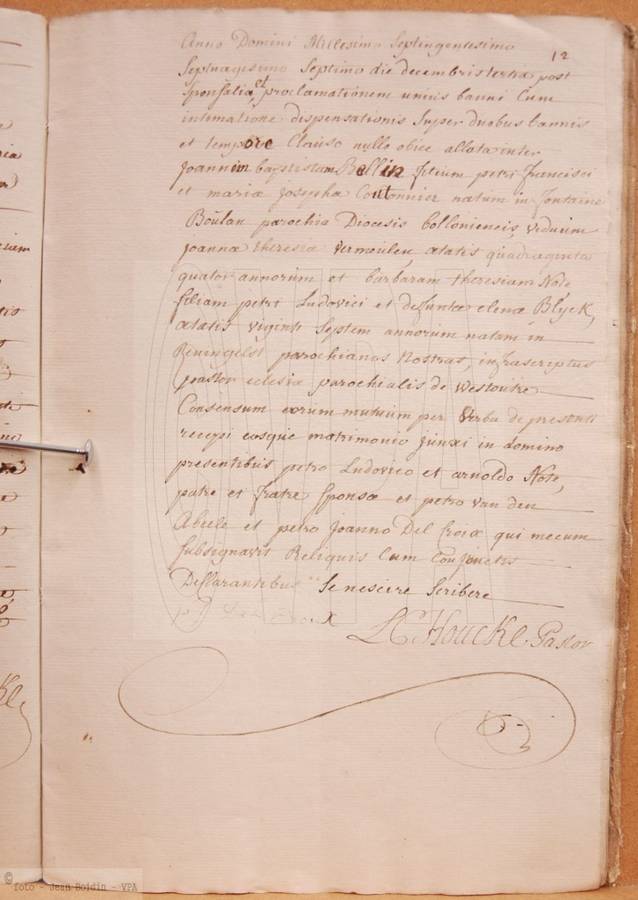 12
Anno Domini Millesimo Septingentesimo
Septuagesimo Septimo die decembris tertia post
Sponsalia, et proclamationem unius banni Cum
intimatione dispensationis Super duobus bannis
et tempore Clauso nullo obice allato inter
Joannem baptistam Bellin filium petri francisci
et mariæ Josepha Coutonnier natum in fontaine
Boulan parochia Diocesis bolloniencis, viduum
Joannæ theresiæ Vermeulen, ætatis quadraginta
quator annorum et barbaram theresiam Note
filiam petri Ludovici et defuntæ elenæ Blyck,
ætatis viginti Septem annorum natam in
Reningelst parochianos Nostros, infrascriptus
pastor eclesiæ parochialis de Westoutre
Consensum eorum mutuum per Verba de presenti
recepi eosque matrimonio Junxi in Domino
presentibus petro Ludovico et arnoldo Note,
patre et fratre Sponsæ et petro van den
Abeele et petro Joanno Del Croix qui mecum
Subsignavit Reliquis Cum Conjunctis
Declarantibus Se nescire Scribere
Croix
Houcke Pastor
© foto - Jean Boidin - VPA